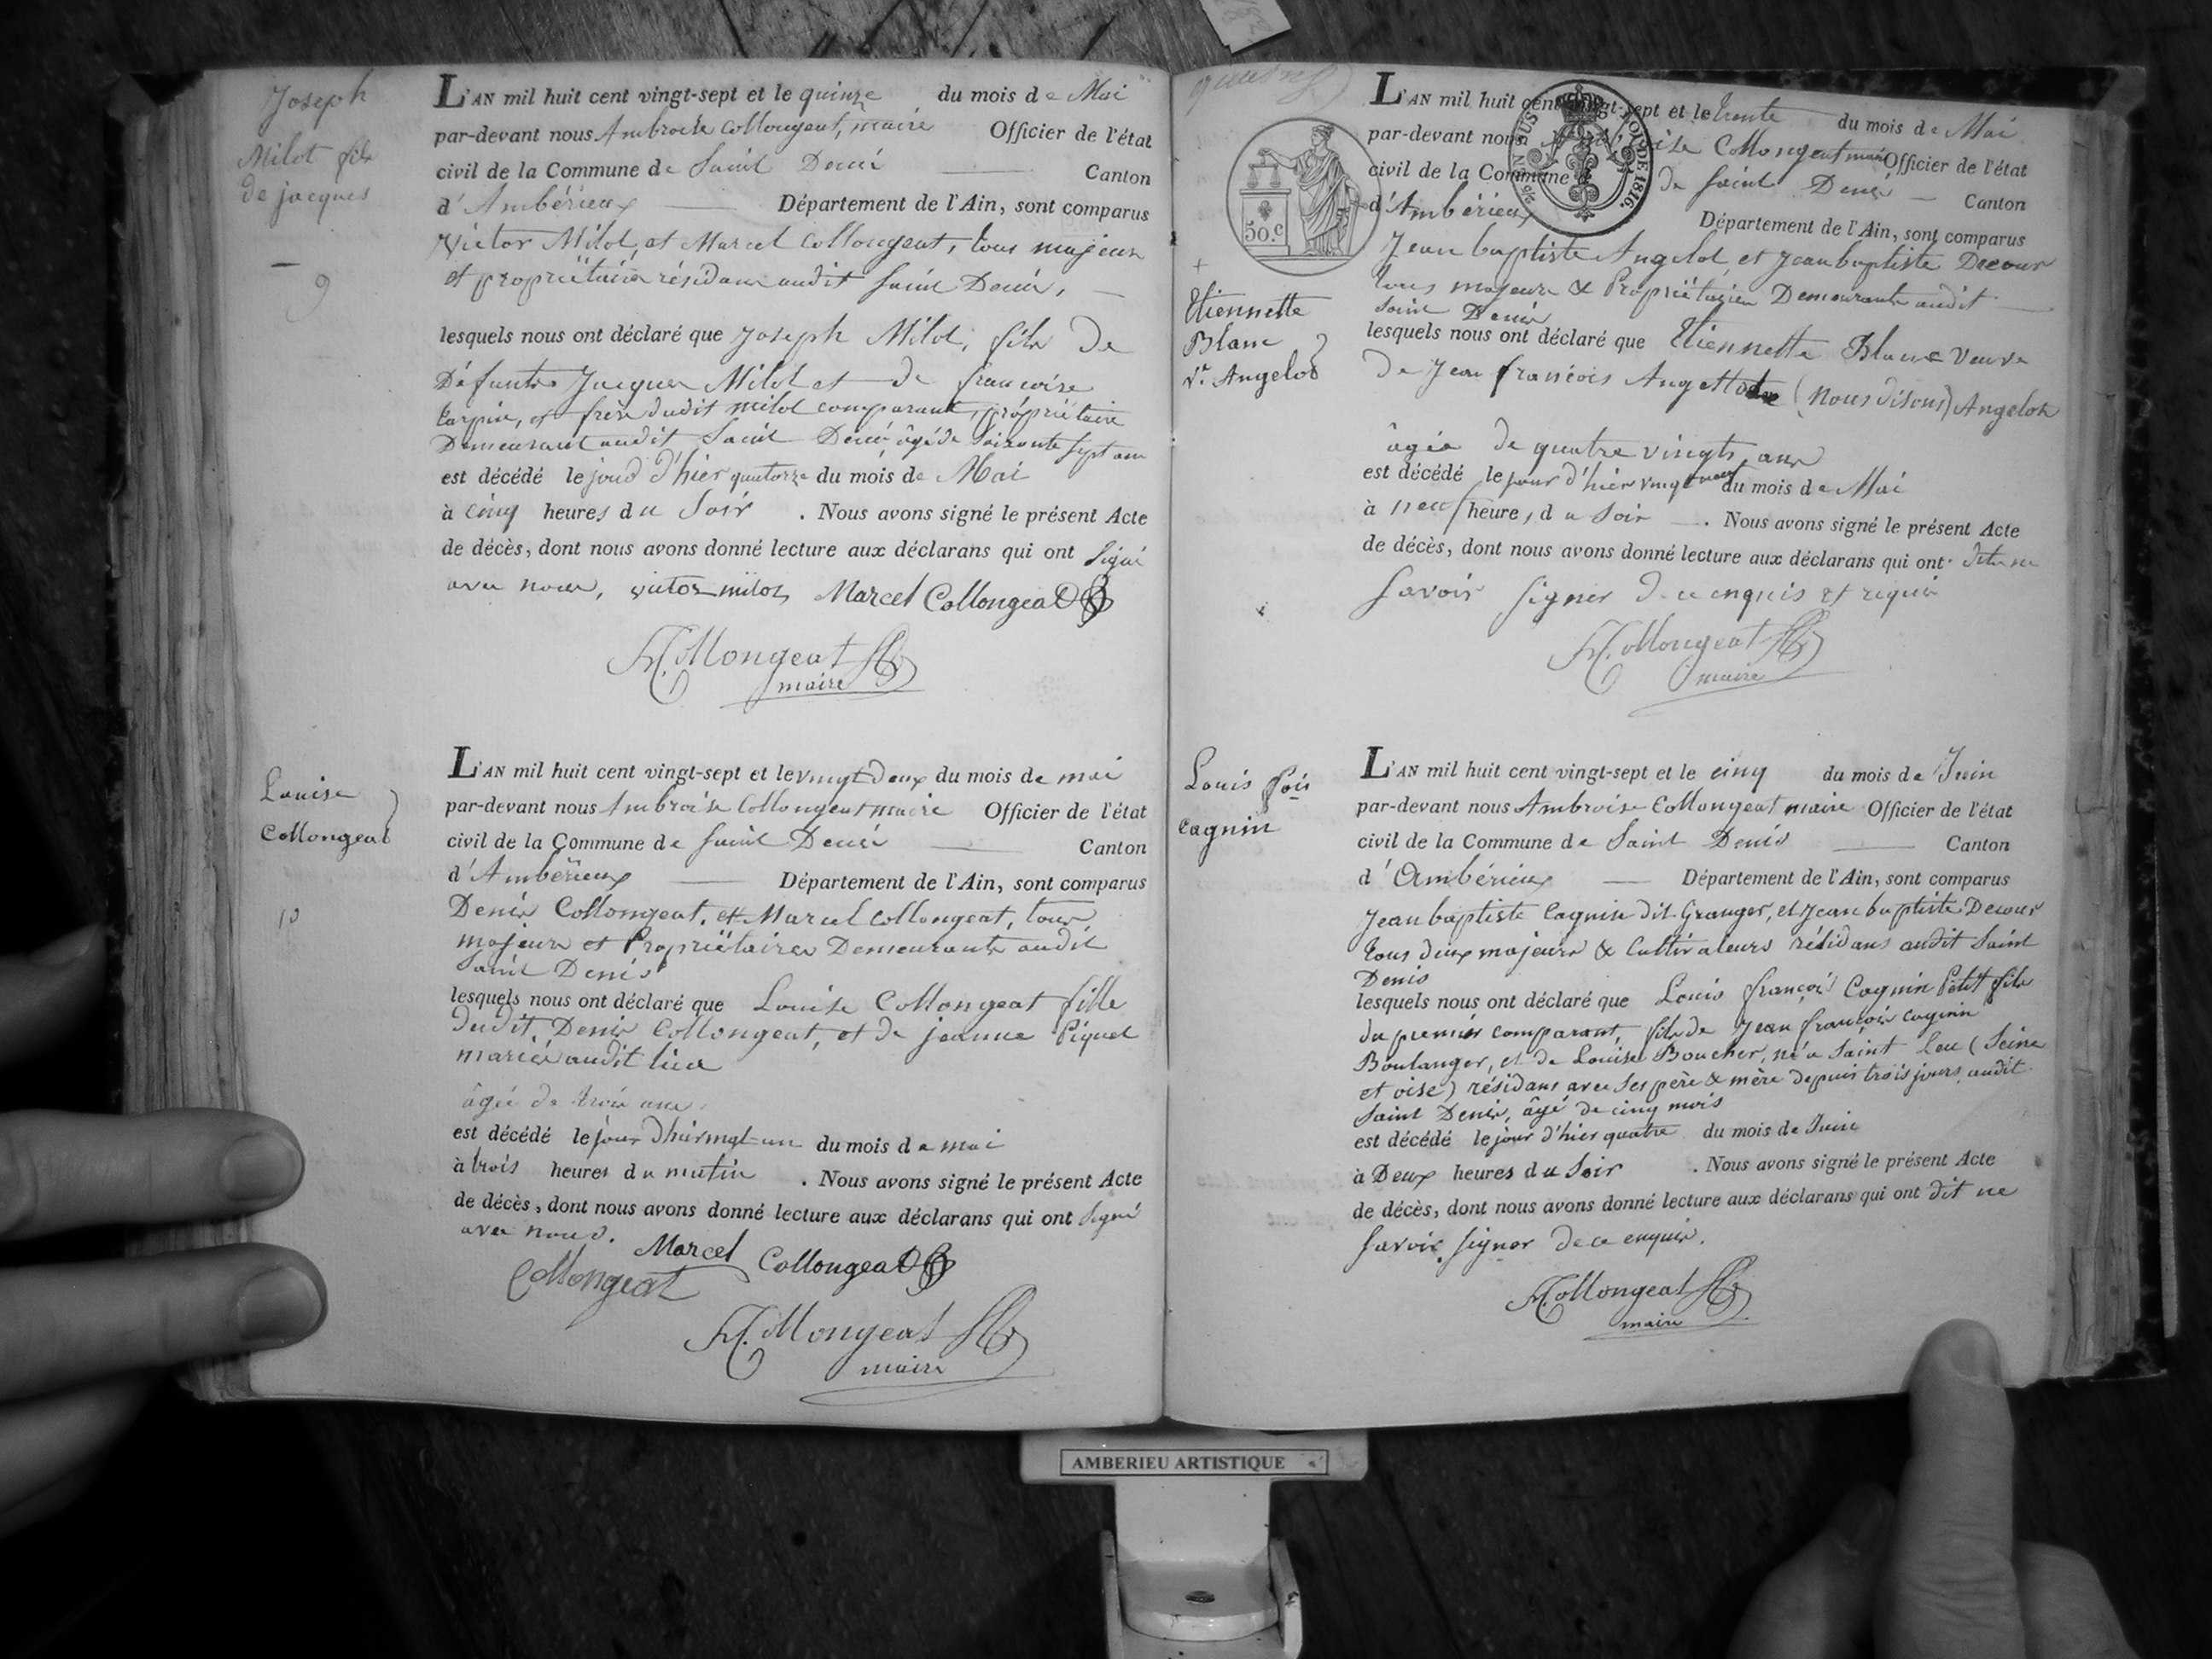 Joseph
Milot fils
de jacques
9
L'AN mil huit cent vingt-sept et le quinze du mois de Mai
par-devant nous Ambroise Collongeat, maire Officier de l'état
civil de la Commune de Saint Denis Canton
d'Ambérieux Département de l'Ain, sont comparus
Victor Milot, et Marcel Collongeat, tous majeurs
et propriëtaires résidans audit Saint Denis,
lesquels nous ont déclaré que Joseph Milot, fils de
Défunts Jacques Milot et de francoise
et frère dudit milot comparant, propriëtaire
Demeurant audit Saint Denis, âgé de Soixante Sept ans
est décédé le jour d'hier quatorze du mois de Mai
à cinq heures du Soir . Nous avons signé le présent Acte
de décès, dont nous avons donné lecture aux déclarans qui ont Signé
avec nous, victor milot Marcel Collongeat
A. Collongeat
maire
Louise
Collongeat
10
L'AN mil huit cent vingt-sept et le vingt-deux du mois de mai
par-devant nous Ambroise Collongeat maire Officier de l'état
civil de la Commune de Saint Denis Canton
d'Ambérieux Département de l'Ain, sont comparus
Denis Collongeat, et Marcel Collongeat, tous
majeurs et Propriëtaires Demeurants audit
Saint Denis
lesquels nous ont déclaré que Louise Collongeat fille
dudit Denis Collongeat, et de jeanne Piquet
mariés audit lieu
âgée de trois ans
est décédé le jour d'hier vingt-un du mois de mai
à trois heures du matin . Nous avons signé le présent Acte
de décès, dont nous avons donné lecture aux déclarans qui ont Signé
avec nous. Marcel Collongeat
Collongeat
A. Collongeat
maire
50.c
ROI DE 1816.
Etiennette
Blanc
Ve. Angelot
L'AN mil huit cent vingt-sept et le trente du mois de Mai
par-devant nous Ambroise Collongeat maire Officier de l'état
civil de la Commune de Saint Denis Canton
d'Ambérieux Département de l'Ain, sont comparus
Jean baptiste Angelot et Jean baptiste Decour
tous majeurs & Propriëtaires Demeurants audit
Saint Denis
lesquels nous ont déclaré que Etiennette Blanc Veuve
De Jean françois (nous disons) Angelot
âgée de quatre vingts ans
est décédé le jour d'hier vingt neuf du mois de Mai
à neuf heures du Soir . Nous avons signé le présent Acte
de décès, dont nous avons donné lecture aux déclarans qui ont dit ne
Savoir Signer de ce enquis et requis
A. Collongeat
maire
Louis fois
Cagnin
L'AN mil huit cent vingt-sept et le cinq du mois de Juin
par-devant nous Ambroise Collongeat maire Officier de l'état
civil de la Commune de Saint Denis Canton
d'Ambérieux Département de l'Ain, sont comparus
Jean baptiste Cagnin dit Granger, et Jean baptiste Decour
tous deux majeurs & Cultivateurs résidans audit Saint
Denis
lesquels nous ont déclaré que Louis françois Cagnin Petit fils
du premier comparant, fils de Jean françois cagnin
Boulanger, et de Louise Boucher, né a Saint Leu (Seine
et oise) résidans avec Ses père & mère depuis trois jours audit
Saint Denis, âgé de cinq mois
est décédé le jour d'hier quatre du mois de Juin
à Deux heures du Soir . Nous avons signé le présent Acte
de décès, dont nous avons donné lecture aux déclarans qui ont dit ne
Savoir Signer de ce enquis.
A. Collongeat
maire
AMBERIEU ARTISTIQUE